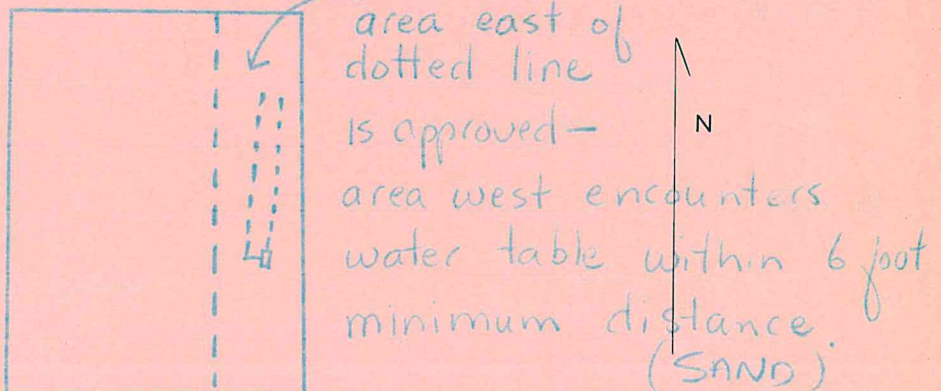 area east of
dotted line
is approved—
N
area west encounters
water table within 6 foot
minimum distance.
(SAND)